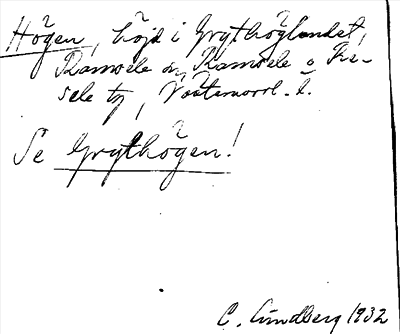 Högen, höjd i Grythöglandet,
Ramsele sn, Ramsele o Re-
sele tg, Västernorrl. l.
Se Grythögen!
C. Lindberg 1932